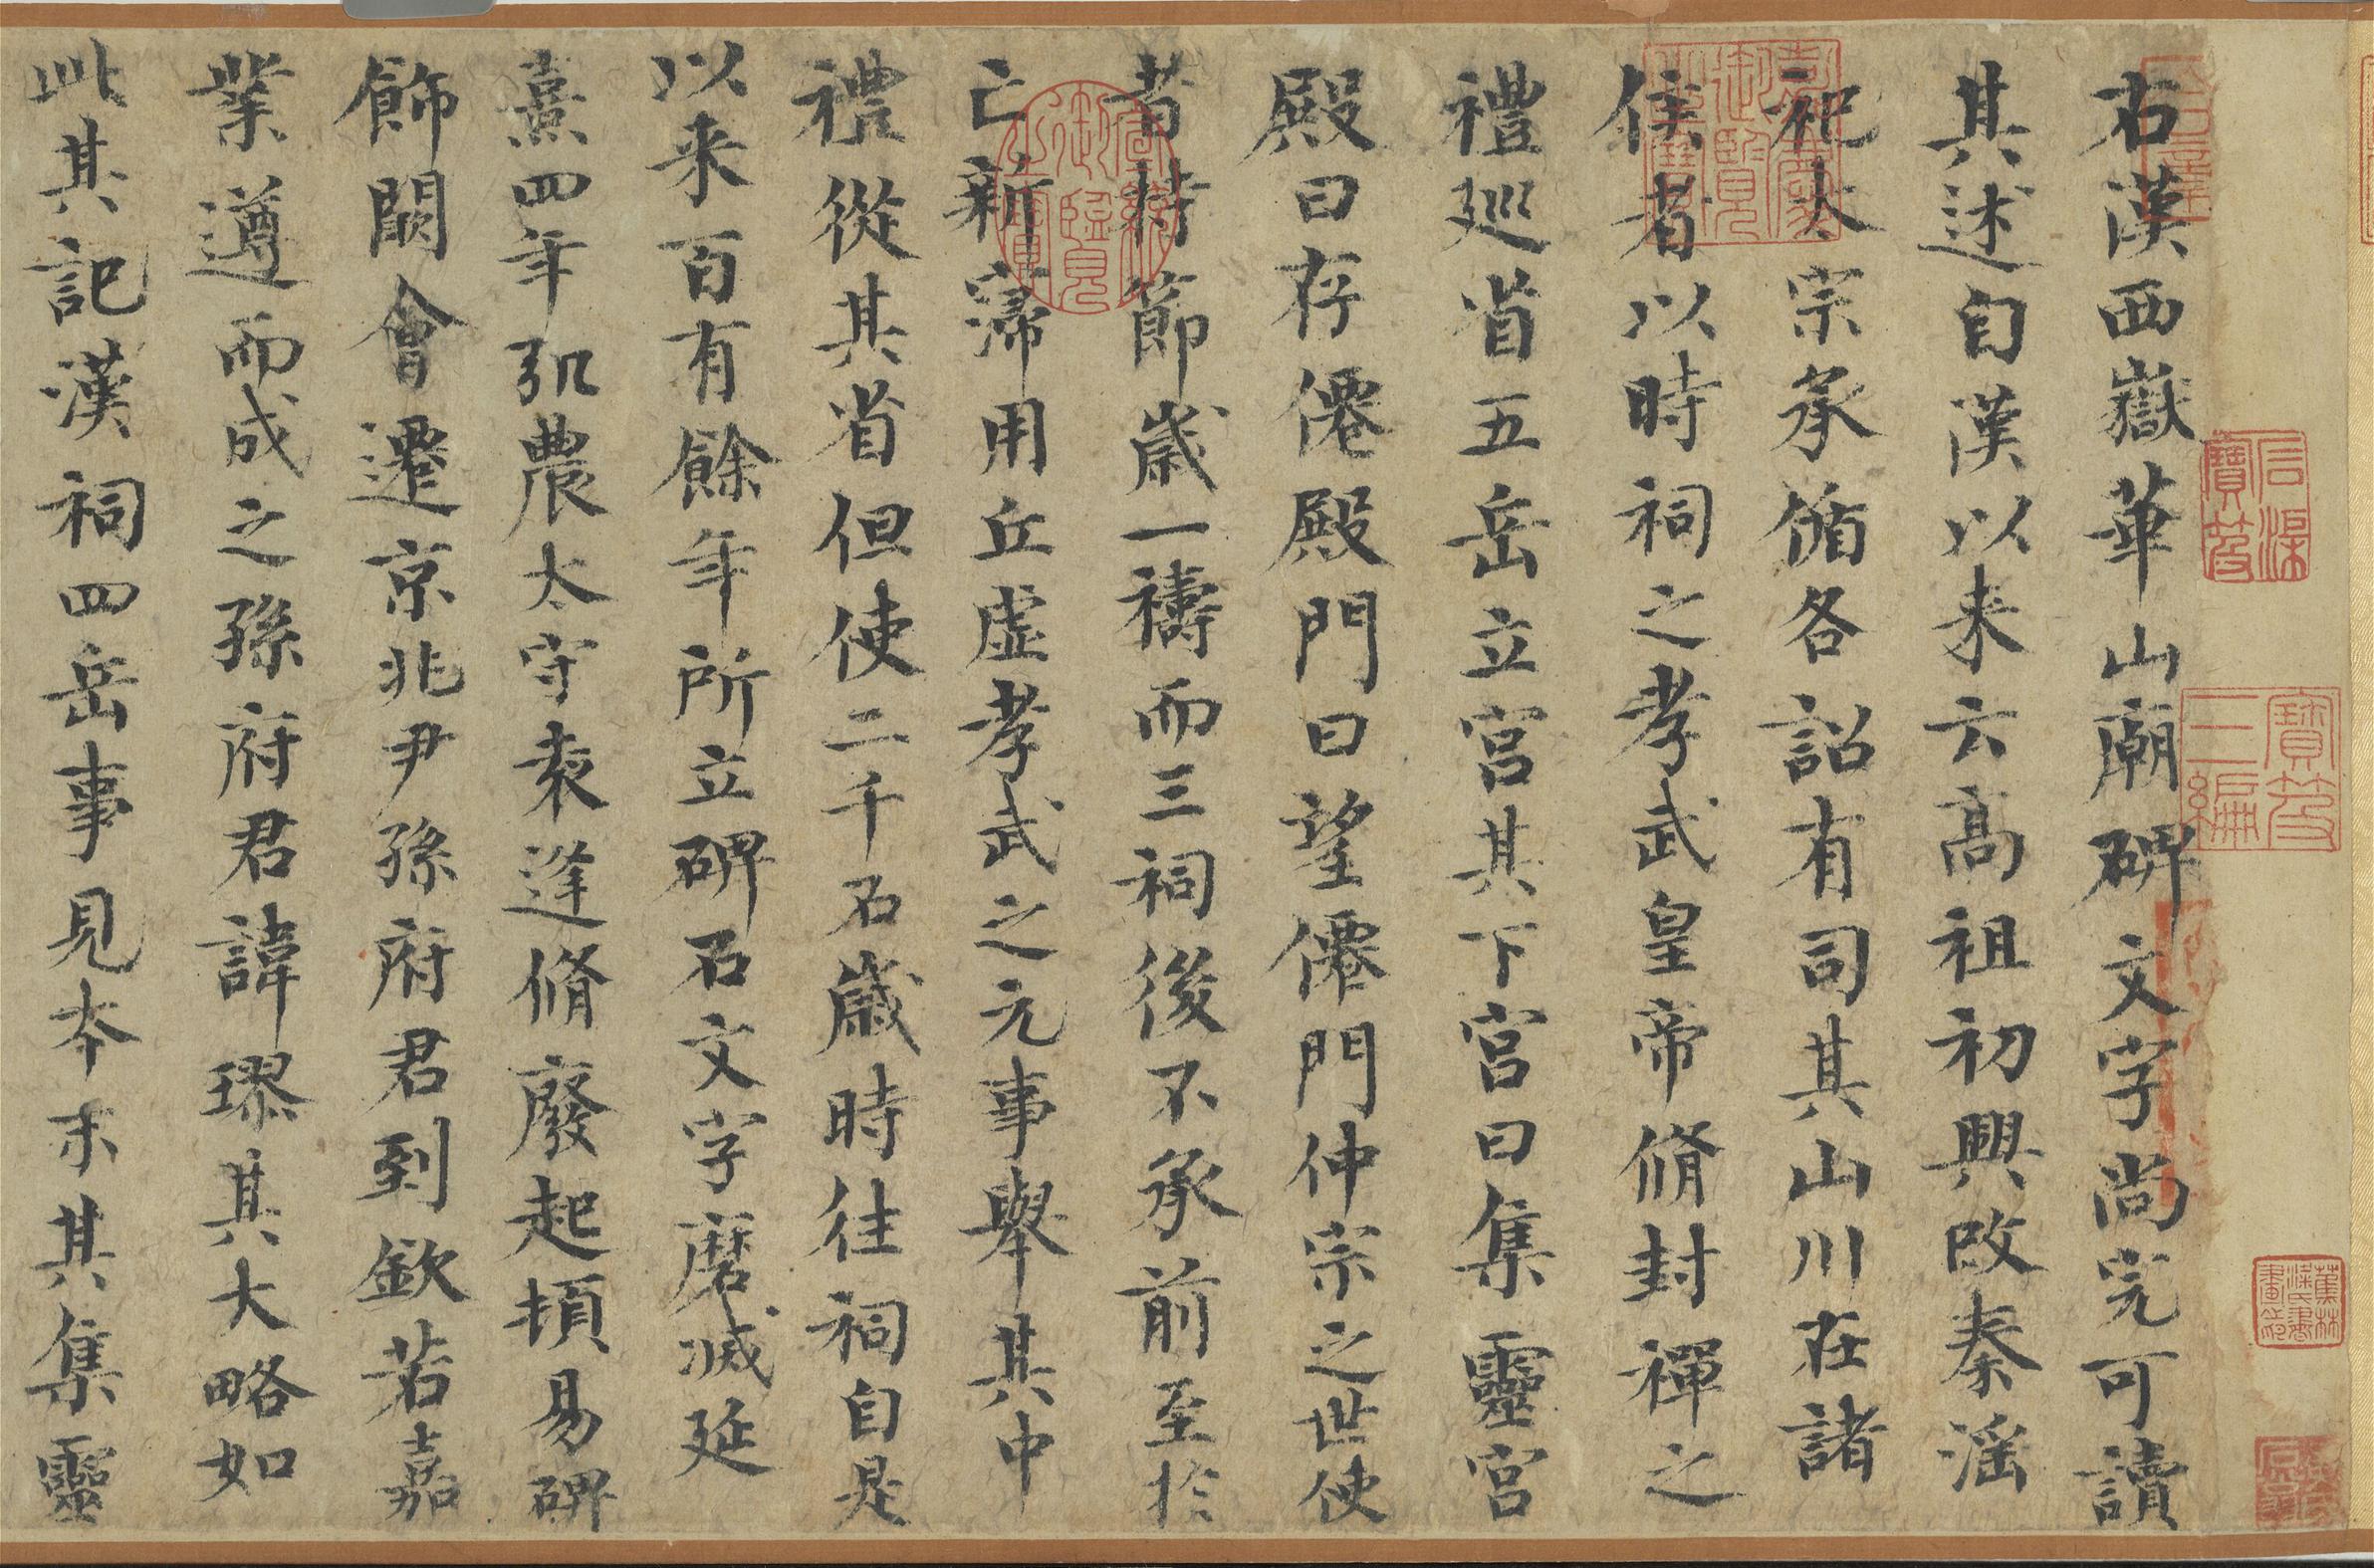 右漢西嶽華山廟碑文字尚完可讀
其述自漢以来云高祖初興改秦滛
祀太宗承循各詔有司其山川在諸
侯者以時祠之孝武皇帝脩封禪之
禮廵省五岳立宫其下宫曰集靈宫
殿曰存僊殿門曰望僊門仲宗之世使
者持節歳一禱而三祠後不承前至於
亡新寖用丘虚孝武之元事舉其中
禮從其省但使二千石歳時往祠自是
以来百有餘年所立碑石文字磨滅延
熹四年弘農太守袁逢脩廢起頓易碑
飾闕會遷京兆尹孫府君到欽若嘉
業遵而成之孫府君諱璆其大略如
此其記漢祠四岳事見夲末其集靈